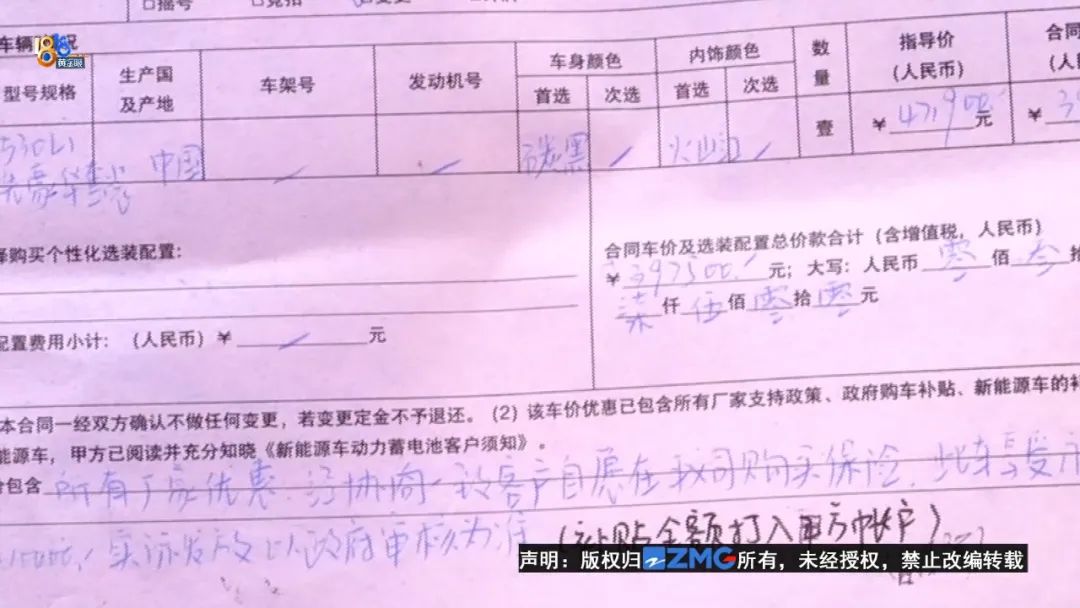 摇号 变更
车辆 况
型号规格 生产国及产地 车架号 发动机号 车身颜色 内饰颜色 数量 指导价(人民币) 合同
首选 次选 首选 次选
530Li 中国 碳黑 火山红 壹 ¥ 元 ¥
豪华套装
择购买个性化选装配置:
合同车价及选装配置总价款合计(含增值税,人民币)
¥ 397500 元; 大写: 人民币 零 佰 叁 拾
柒 仟 伍 佰 零 拾 零 元
配置费用小计: (人民币) ¥ 元
本合同一经双方确认不做任何变更,若变更定金不予退还。(2) 该车价优惠已包含所有厂家支持政策、政府购车补贴、新能源车的补
能源车,甲方已阅读并充分知晓《新能源车动力蓄电池客户须知》。
包含 所有厂家优惠.经协商一致客户自愿在我司购买保险.此车享受
实际发放以政府审核为准 (补贴金额打入甲方帐户)
声明:版权归ZMG所有,未经授权,禁止改编转载
黄金眼